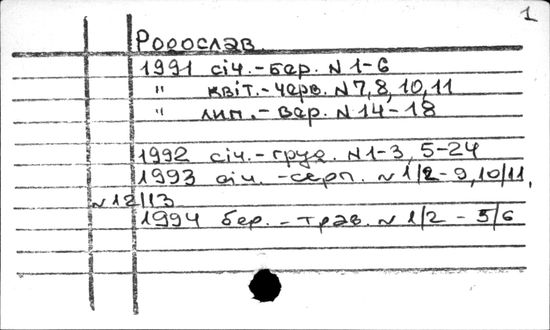 1
Родослав
1991 січ.-бер. N 1-6
" квіт.-черв. N 7, 8, 10, 11
" лип.-вер. N 14-18
1992 січ.-груд. N 1-3, 5-24
1993 січ.-серп. N 1/2-9, 10/11,
N 12/13
1994 бер.-трав. N 1/2 - 5/6